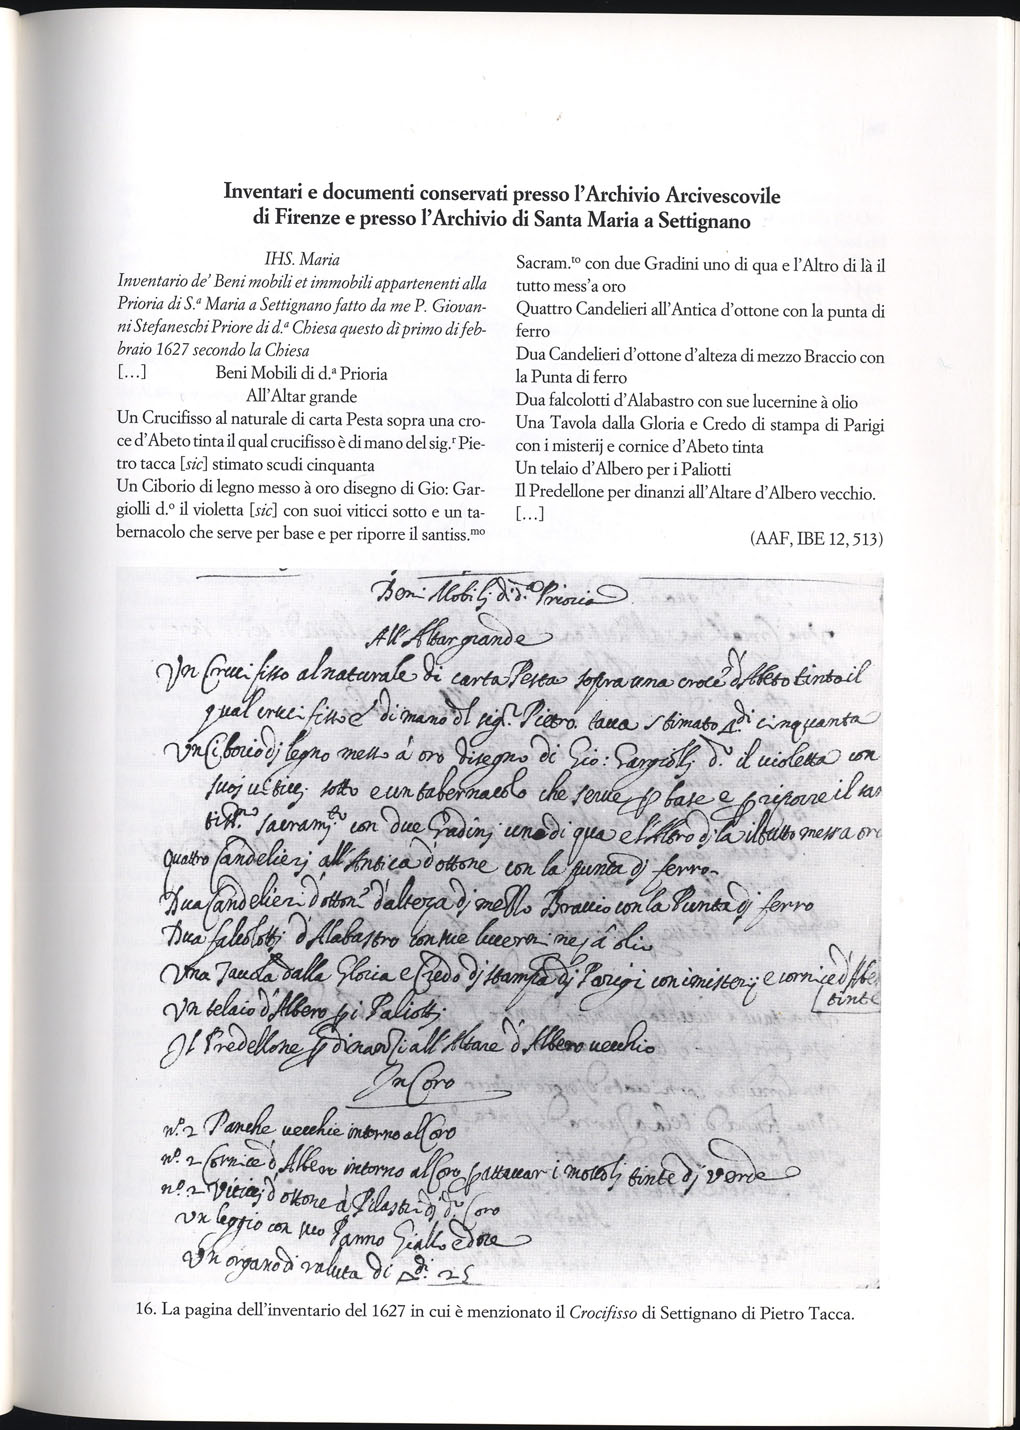 Inventari e documenti conservati presso l'Archivio Arcivescovile
di Firenze e presso l'Archivio di Santa Maria a Settignano
IHS. Maria
Inventario de' Beni mobili et immobili appartenenti alla
Prioria di S.ª Maria a Settignano fatto da me P. Giovan-
ni Stefaneschi Priore di d.ª Chiesa questo dì primo di feb-
braio 1627 secondo la Chiesa
[…] Beni Mobili di d.ª Prioria
All'Altar grande
Un Crucifisso al naturale di carta Pesta sopra una cro-
ce d'Abeto tinta il qual crucifisso è di mano del sig.ʳ Pie-
tro tacca [sic] stimato scudi cinquanta
Un Ciborio di legno messo à oro disegno di Gio: Gar-
giolli d.º il violetta [sic] con suoi viticci sotto e un ta-
bernacolo che serve per base e per riporre il santiss.ᵐᵒ
Sacram.ᵗᵒ con due Gradini uno di qua e l'Altro di là il
tutto mess'a oro
Quattro Candelieri all'Antica d'ottone con la punta di
ferro
Dua Candelieri d'ottone d'alteza di mezzo Braccio con
la Punta di ferro
Dua falcolotti d'Alabastro con sue lucernine à olio
Una Tavola dalla Gloria e Credo di stampa di Parigi
con i misterij e cornice d'Abeto tinta
Un telaio d'Albero per i Paliotti
Il Predellone per dinanzi all'Altare d'Albero vecchio.
[…]
(AAF, IBE 12, 513)
Beni Mobilj di d.ª Prioria
All'Altar grande
Un Crucifisso al naturale di carta Pesta sopra una croce d'Abeto tinta il
qual crucifisso è di mano del sig.ʳ Pietro tacca stimato di cinquanta
Un Ciborio dj legno messo à oro disegno di Gio: Gargiollj d.º il violetta con
suoj viticcj sotto e un tabernacolo che serve p base e p riporre il san
tiss.ᵐᵒ sacram.ᵗᵒ con due Gradinj uno di qua e l'Altro dj la il tutto messa oro
Quattro Candelierj all'Antica d'ottone con la punta dj ferro
Dua Candelieri d'ottone d'alteza dj mezzo Braccio con la Punta dj ferro
Dua falcolottj d'Alabastro con sue lucerninej à olio
Una Tavola dalla Gloria e Credo dj stampa dj Parigi con i misterij e cornice d'Abe
tinte
Un telaio d'Albero p i Paliottj
Il Predellone p dinanzi all'Altare d'Albero vecchio
In Coro
nº. 2 Panche vecchie intorno al Coro
nº. 2 Cornice d'Albero intorno al Coro p attaccar i tinte dj verde
nº. 2 Viticcj d'ottone à Pilastri dj d.º Coro
Un leggio con suo Panno Giallo
Un organo di valuta di di 25
16. La pagina dell'inventario del 1627 in cui è menzionato il Crocifisso di Settignano di Pietro Tacca.